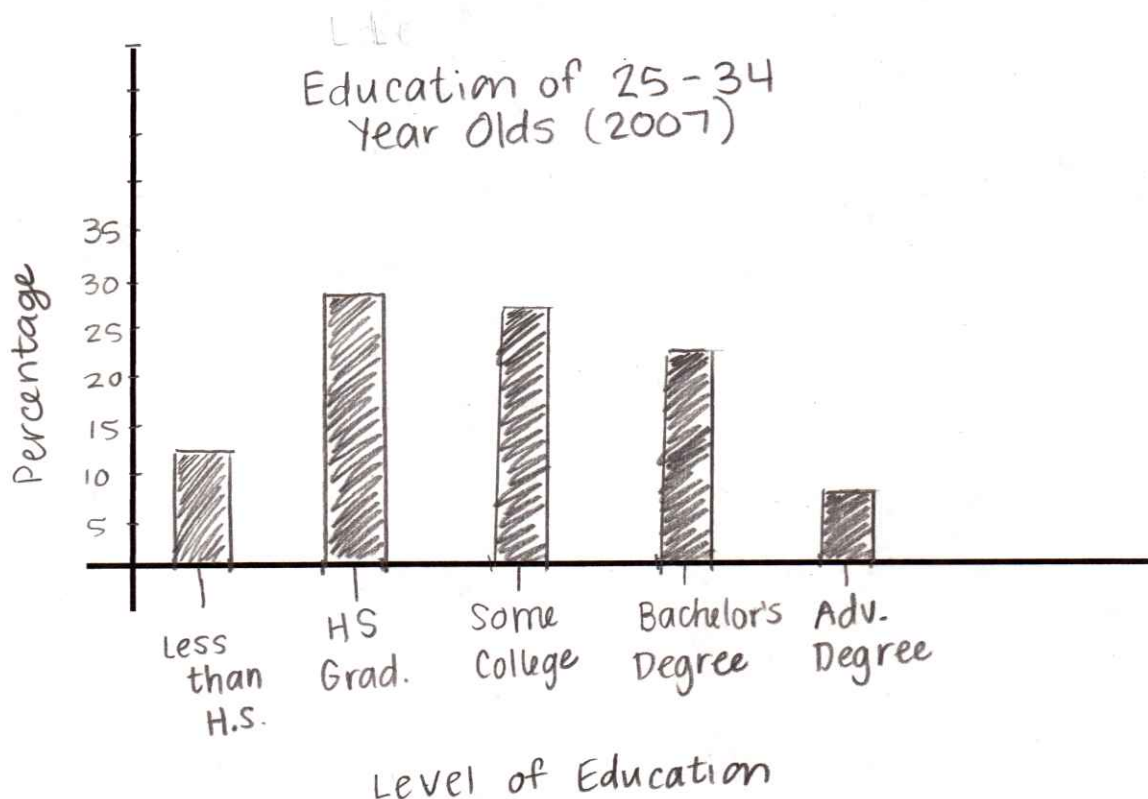 Education of 25-34
Year Olds (2007)
Percentage
35
30
25
20
15
10
5
Less
than
H.S.
HS
Grad.
Some
College
Bachelor's
Degree
Adv.
Degree
Level of Education